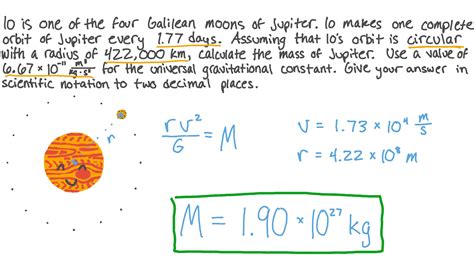 Io is one of the four Galilean moons of Jupiter. Io makes one complete
orbit of Jupiter every 1.77 days. Assuming that Io's orbit is circular
with a radius of 422,000 km, calculate the mass of Jupiter. Use a value of
6.67 × 10⁻¹¹ m³/kg·s² for the universal gravitational constant. Give your answer in
scientific notation to two decimal places.
r
r v²/G = M
v = 1.73 × 10⁴ m/s
r = 4.22 × 10⁸ m
M = 1.90 × 10²⁷ kg